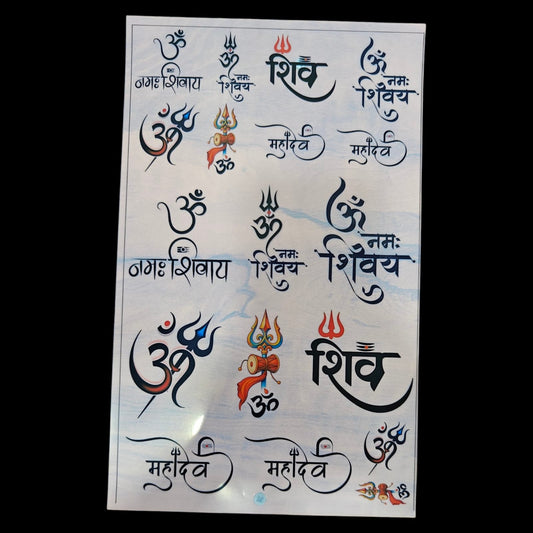 ॐ
नमः शिवाय
ॐ
नमः
शिवय
शिव
ॐ
नमः
शिवय
ॐ
ॐ
महादेव
महादेव
ॐ
नमः शिवाय
ॐ
नमः
शिवय
ॐ
नमः
शिवय
ॐ
ॐ
शिव
महादेव
महादेव
ॐ
ॐ